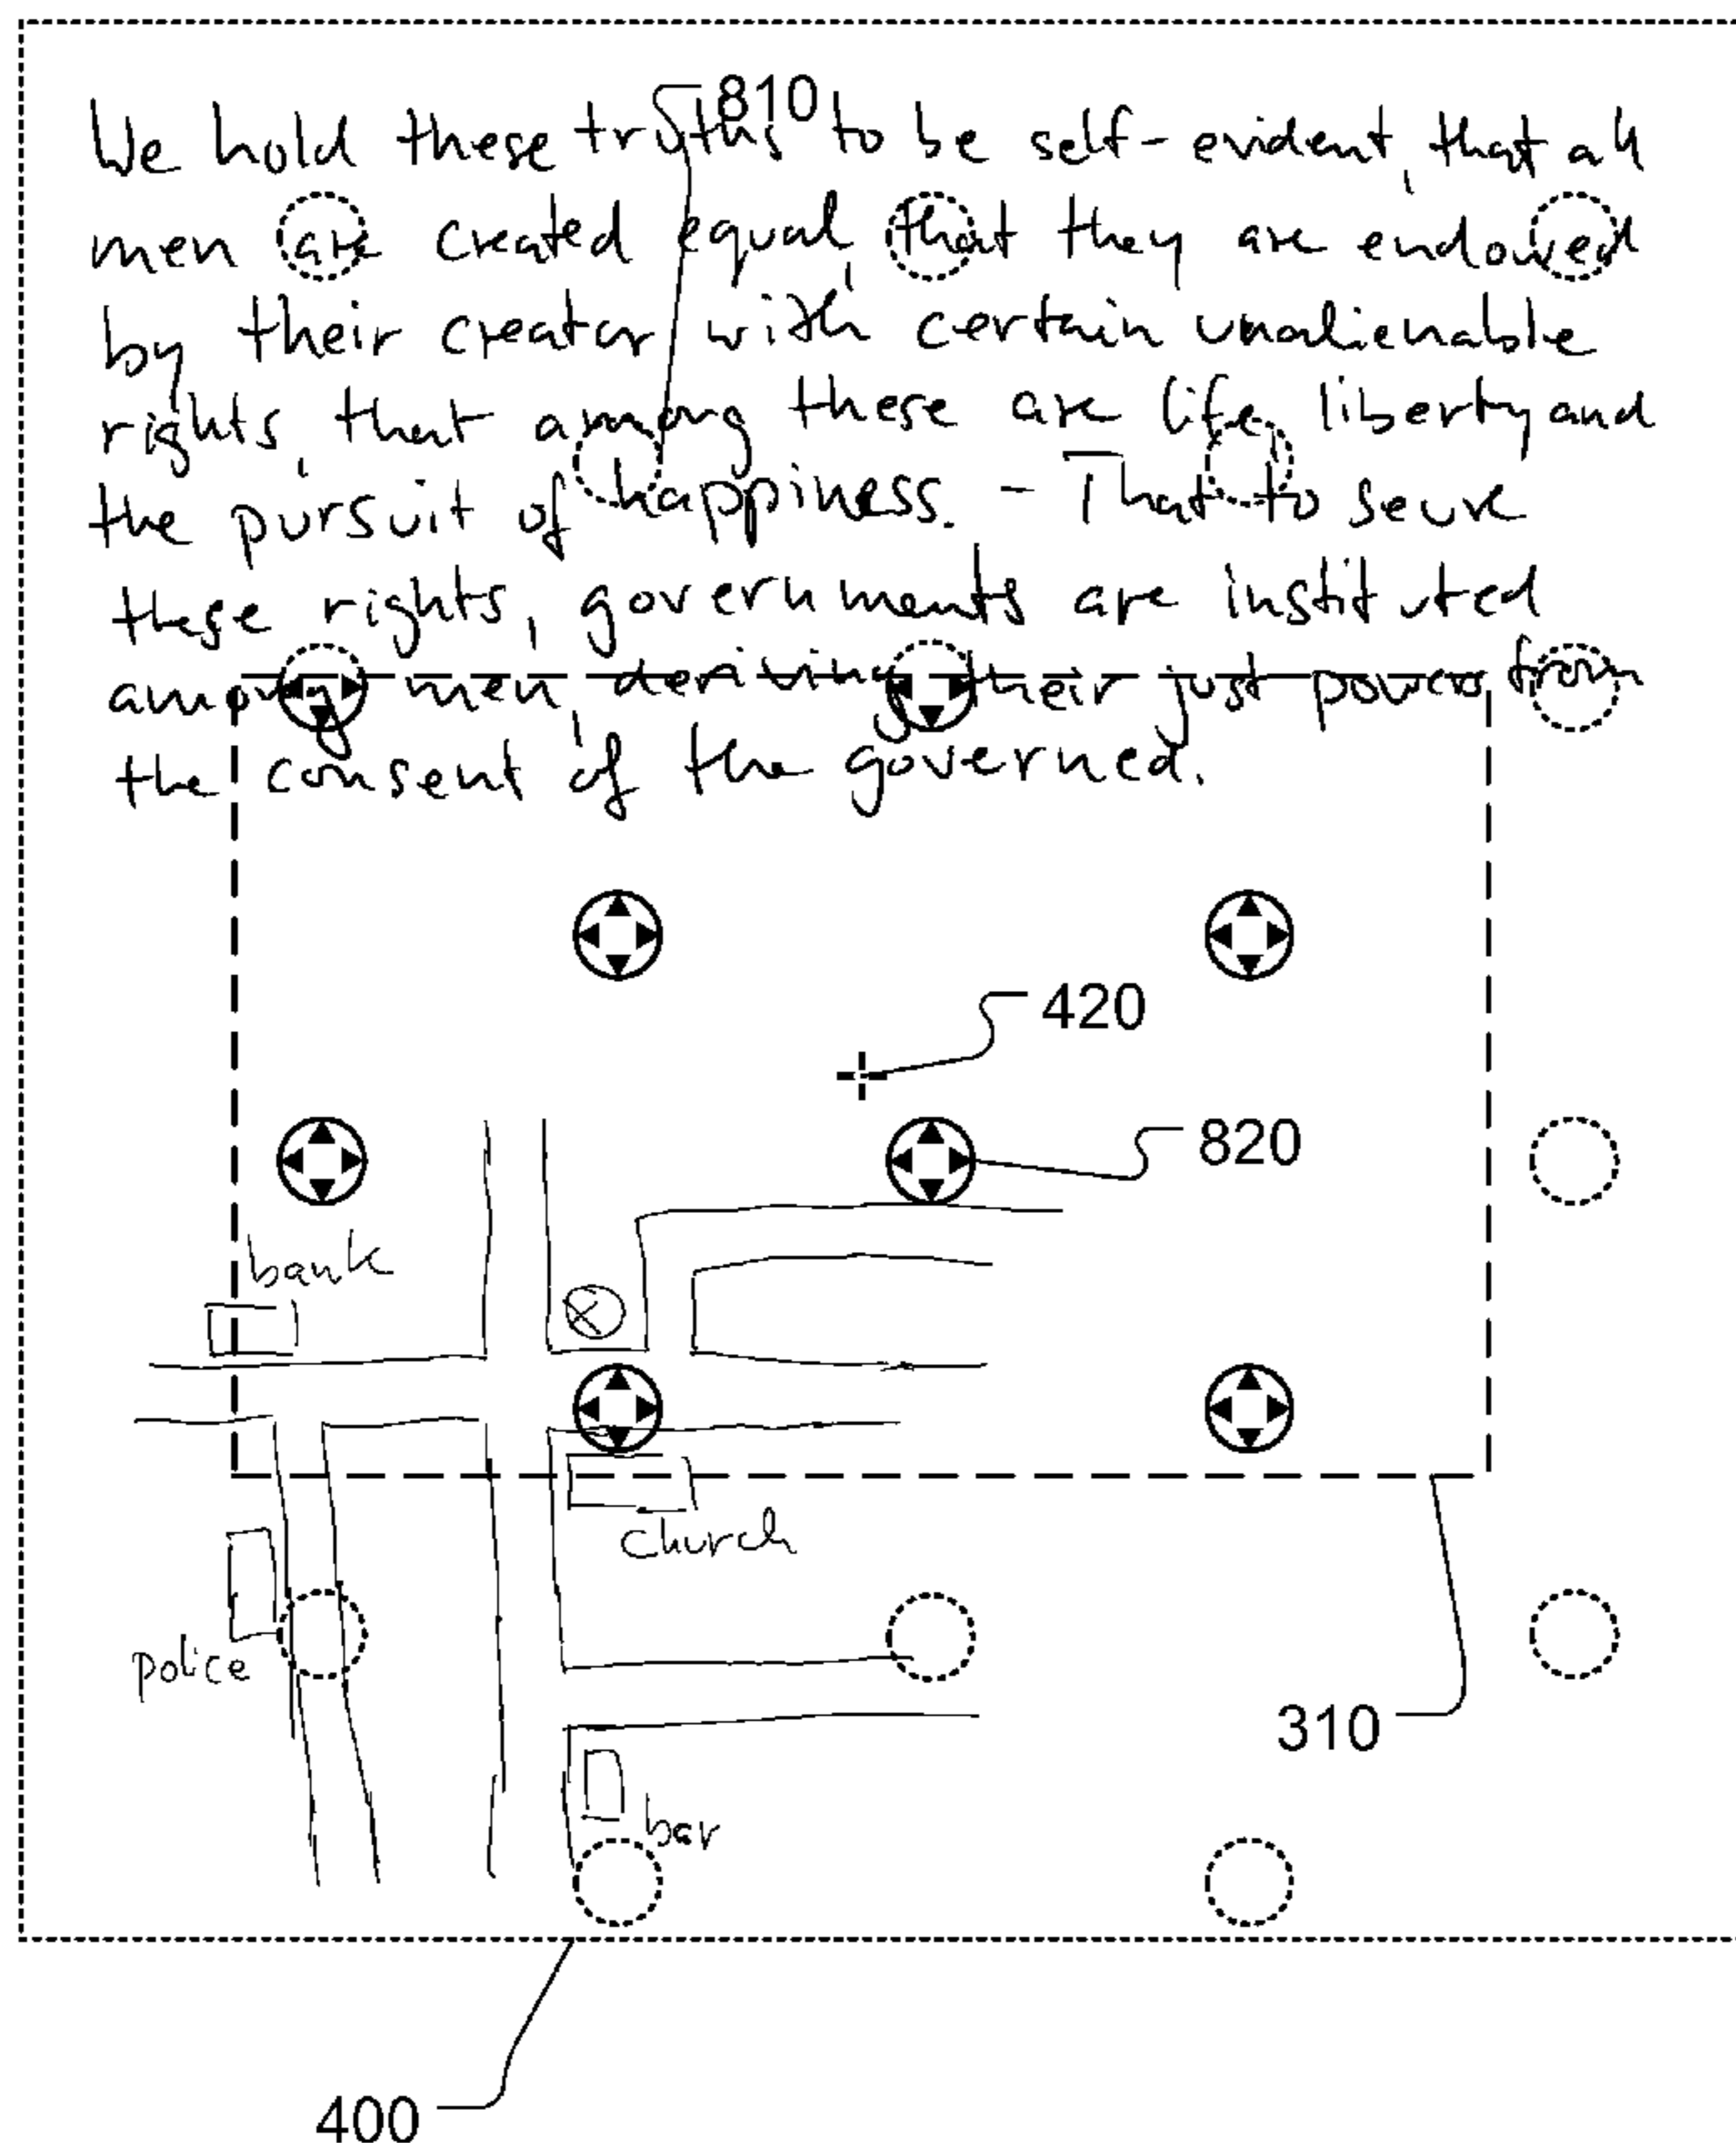 810
We hold these truths to be self-evident, that all
men are created equal, that they are endowed
by their creator with certain unalienable
rights, that among these are life, liberty and
the pursuit of happiness. - That to seure
these rights, governments are instituted
among men, deriving their just powers from
the consent of the governed.
420
820
bank
church
police
310
bar
400